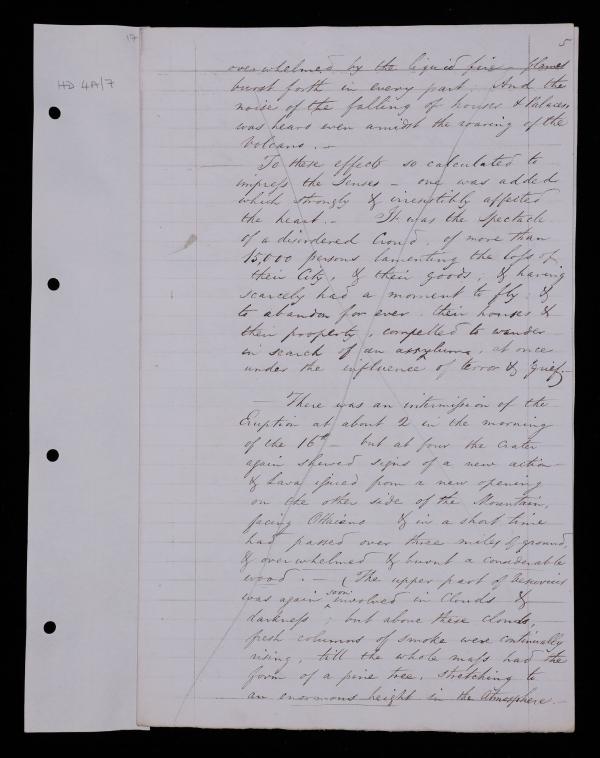 17
5
HD 4A/7
overwhelmed by the liquid fire – flames
burst forth in every part. And the
noise of the falling of houses & Palaces
was heard even amidst the roaring of the
Volcano. –
To these effects so calculated to
impress the Senses – one was added
which strongly & irresistibly affected
the heart. – It was the Spectacle
of a disordered Crowd, of more than
15,000 persons lamenting the loss of
their City, & their goods, & having
scarcely had a moment to fly, &
to abandon for ever their houses &
their property, compelled to wander
in search of an assylum, at once
under the influence of terror & grief –
– There was an intermission of the
Eruption at about 2 in the morning
of the 16th – but at four the Crater
again shewed signs of a new action
& Lava issued from a new opening
on the other side of the Mountain,
facing Ottaiano & in a short time
had passed over three miles of ground,
& overwhelmed & burnt a considerable
wood. – (The upper part of Vesuvius
was again soon involved in Clouds &
darkness; but above these clouds,
fresh columns of smoke were continually
rising, till the whole mass had the
form of a pine tree, stretching to
an enormous height in the Atmosphere. –